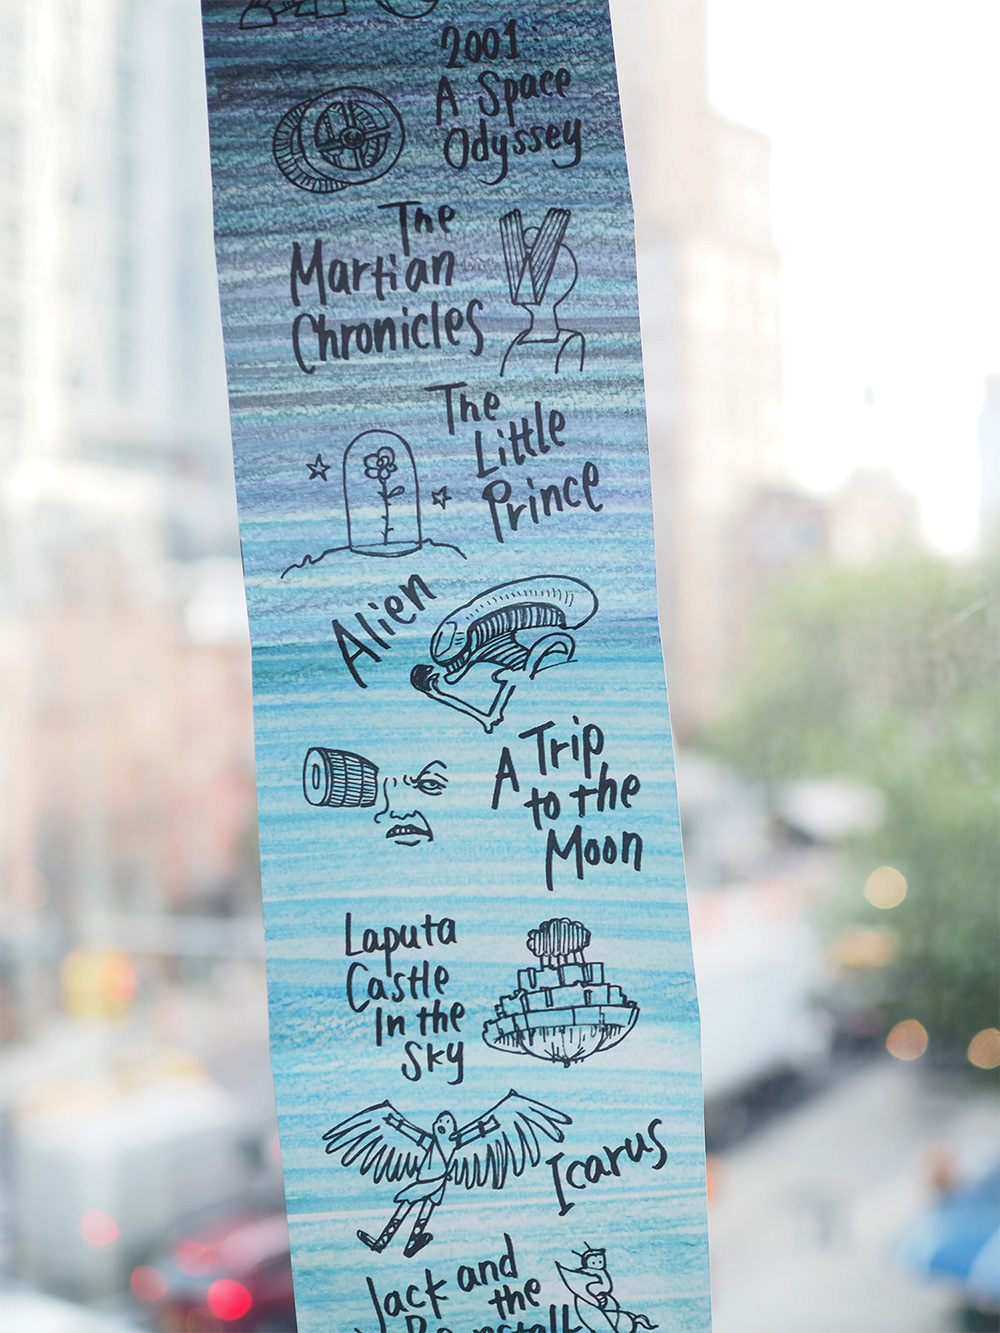 2001:
A Space
Odyssey
The
Martian
Chronicles
The
Little
Prince
Alien
A Trip
to the
Moon
Laputa
Castle
In the
Sky
Icarus
Jack and
the